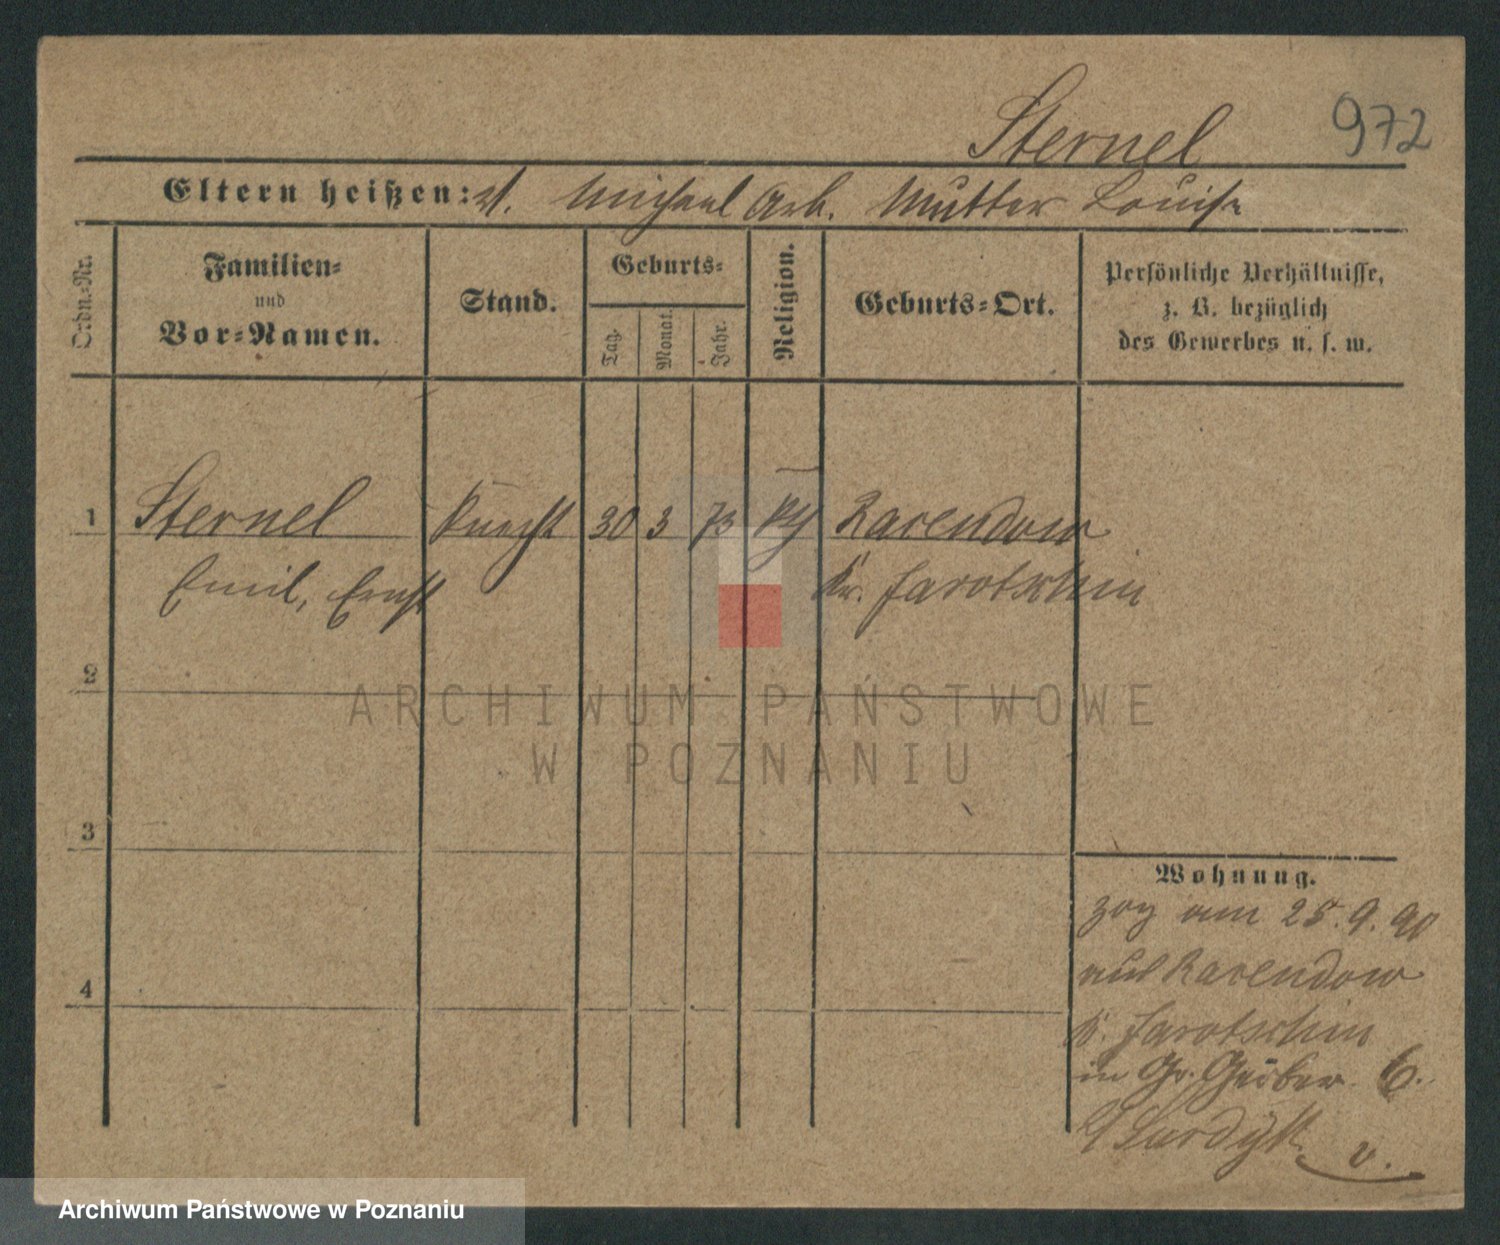 Sternel 972
Eltern heißen: V. Michael Arb. Mutter Louise
Ordn.-Nr.
Familien-
und
Vor-Namen.
Stand.
Geburts-
Tag.
Monat.
Jahr.
Religion.
Geburts-Ort.
Persönliche Verhältnisse,
z. B. bezüglich
des Gewerbes u. s. w.
1 Sternel Knecht 30 3 73 Rarendow
Emil, Ernst Kr. Jarotschin
2
3
4
Wohnung.
zog am 25.9.90
aus Rarendow
K. Jarotschin
in Gr. 6.
v.
ARCHIWUM PAŃSTWOWE
W POZNANIU
Archiwum Państwowe w Poznaniu